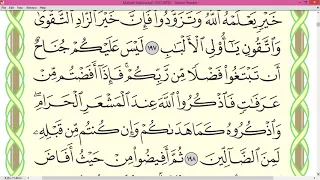 خَيْرٍ يَعْلَمْهُ ٱللَّهُ وَتَزَوَّدُوا۟ فَإِنَّ خَيْرَ ٱلزَّادِ ٱلتَّقْوَىٰ
وَٱتَّقُونِ يَـٰٓأُو۟لِى ٱلْأَلْبَـٰبِ ١٩٧ لَيْسَ عَلَيْكُمْ جُنَاحٌ
أَن تَبْتَغُوا۟ فَضْلًا مِّن رَّبِّكُمْ فَإِذَآ أَفَضْتُم مِّنْ
عَرَفَـٰتٍ فَٱذْكُرُوا۟ ٱللَّهَ عِندَ ٱلْمَشْعَرِ ٱلْحَرَامِ
وَٱذْكُرُوهُ كَمَا هَدَىٰكُمْ وَإِن كُنتُم مِّن قَبْلِهِۦ
لَمِنَ ٱلضَّآلِّينَ ١٩٨ ثُمَّ أَفِيضُوا۟ مِنْ حَيْثُ أَفَاضَ